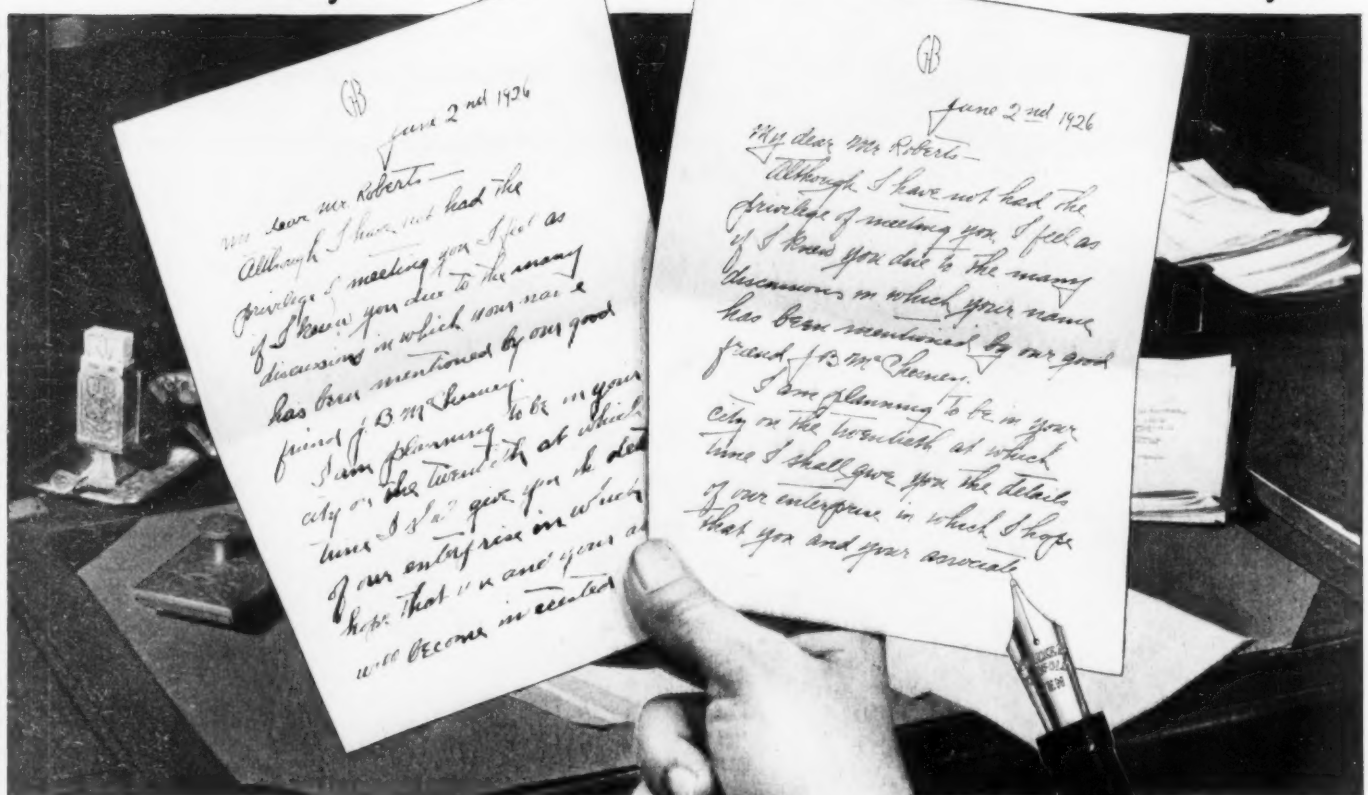 GB
June 2nd 1926
My dear Mr. Roberts—
Although I have not had the
privilege of meeting you I feel as
if I knew you due to the many
discussions in which your name
has been mentioned by our good
friend J. B. McChesney.
I am planning to be in your
city on the twentieth at which
time I shall give you the det
of our enterprise in which
hope that you and your a
will become interested
GB
June 2nd 1926
My dear Mr Roberts—
Although I have not had the
privilege of meeting you, I feel as
if I knew you due to the many
discussions in which your name
has been mentioned by our good
friend J B McChesney.
I am planning to be in your
city on the twentieth at which
time I shall give you the details
of our enterprise in which I hope
that you and your associate